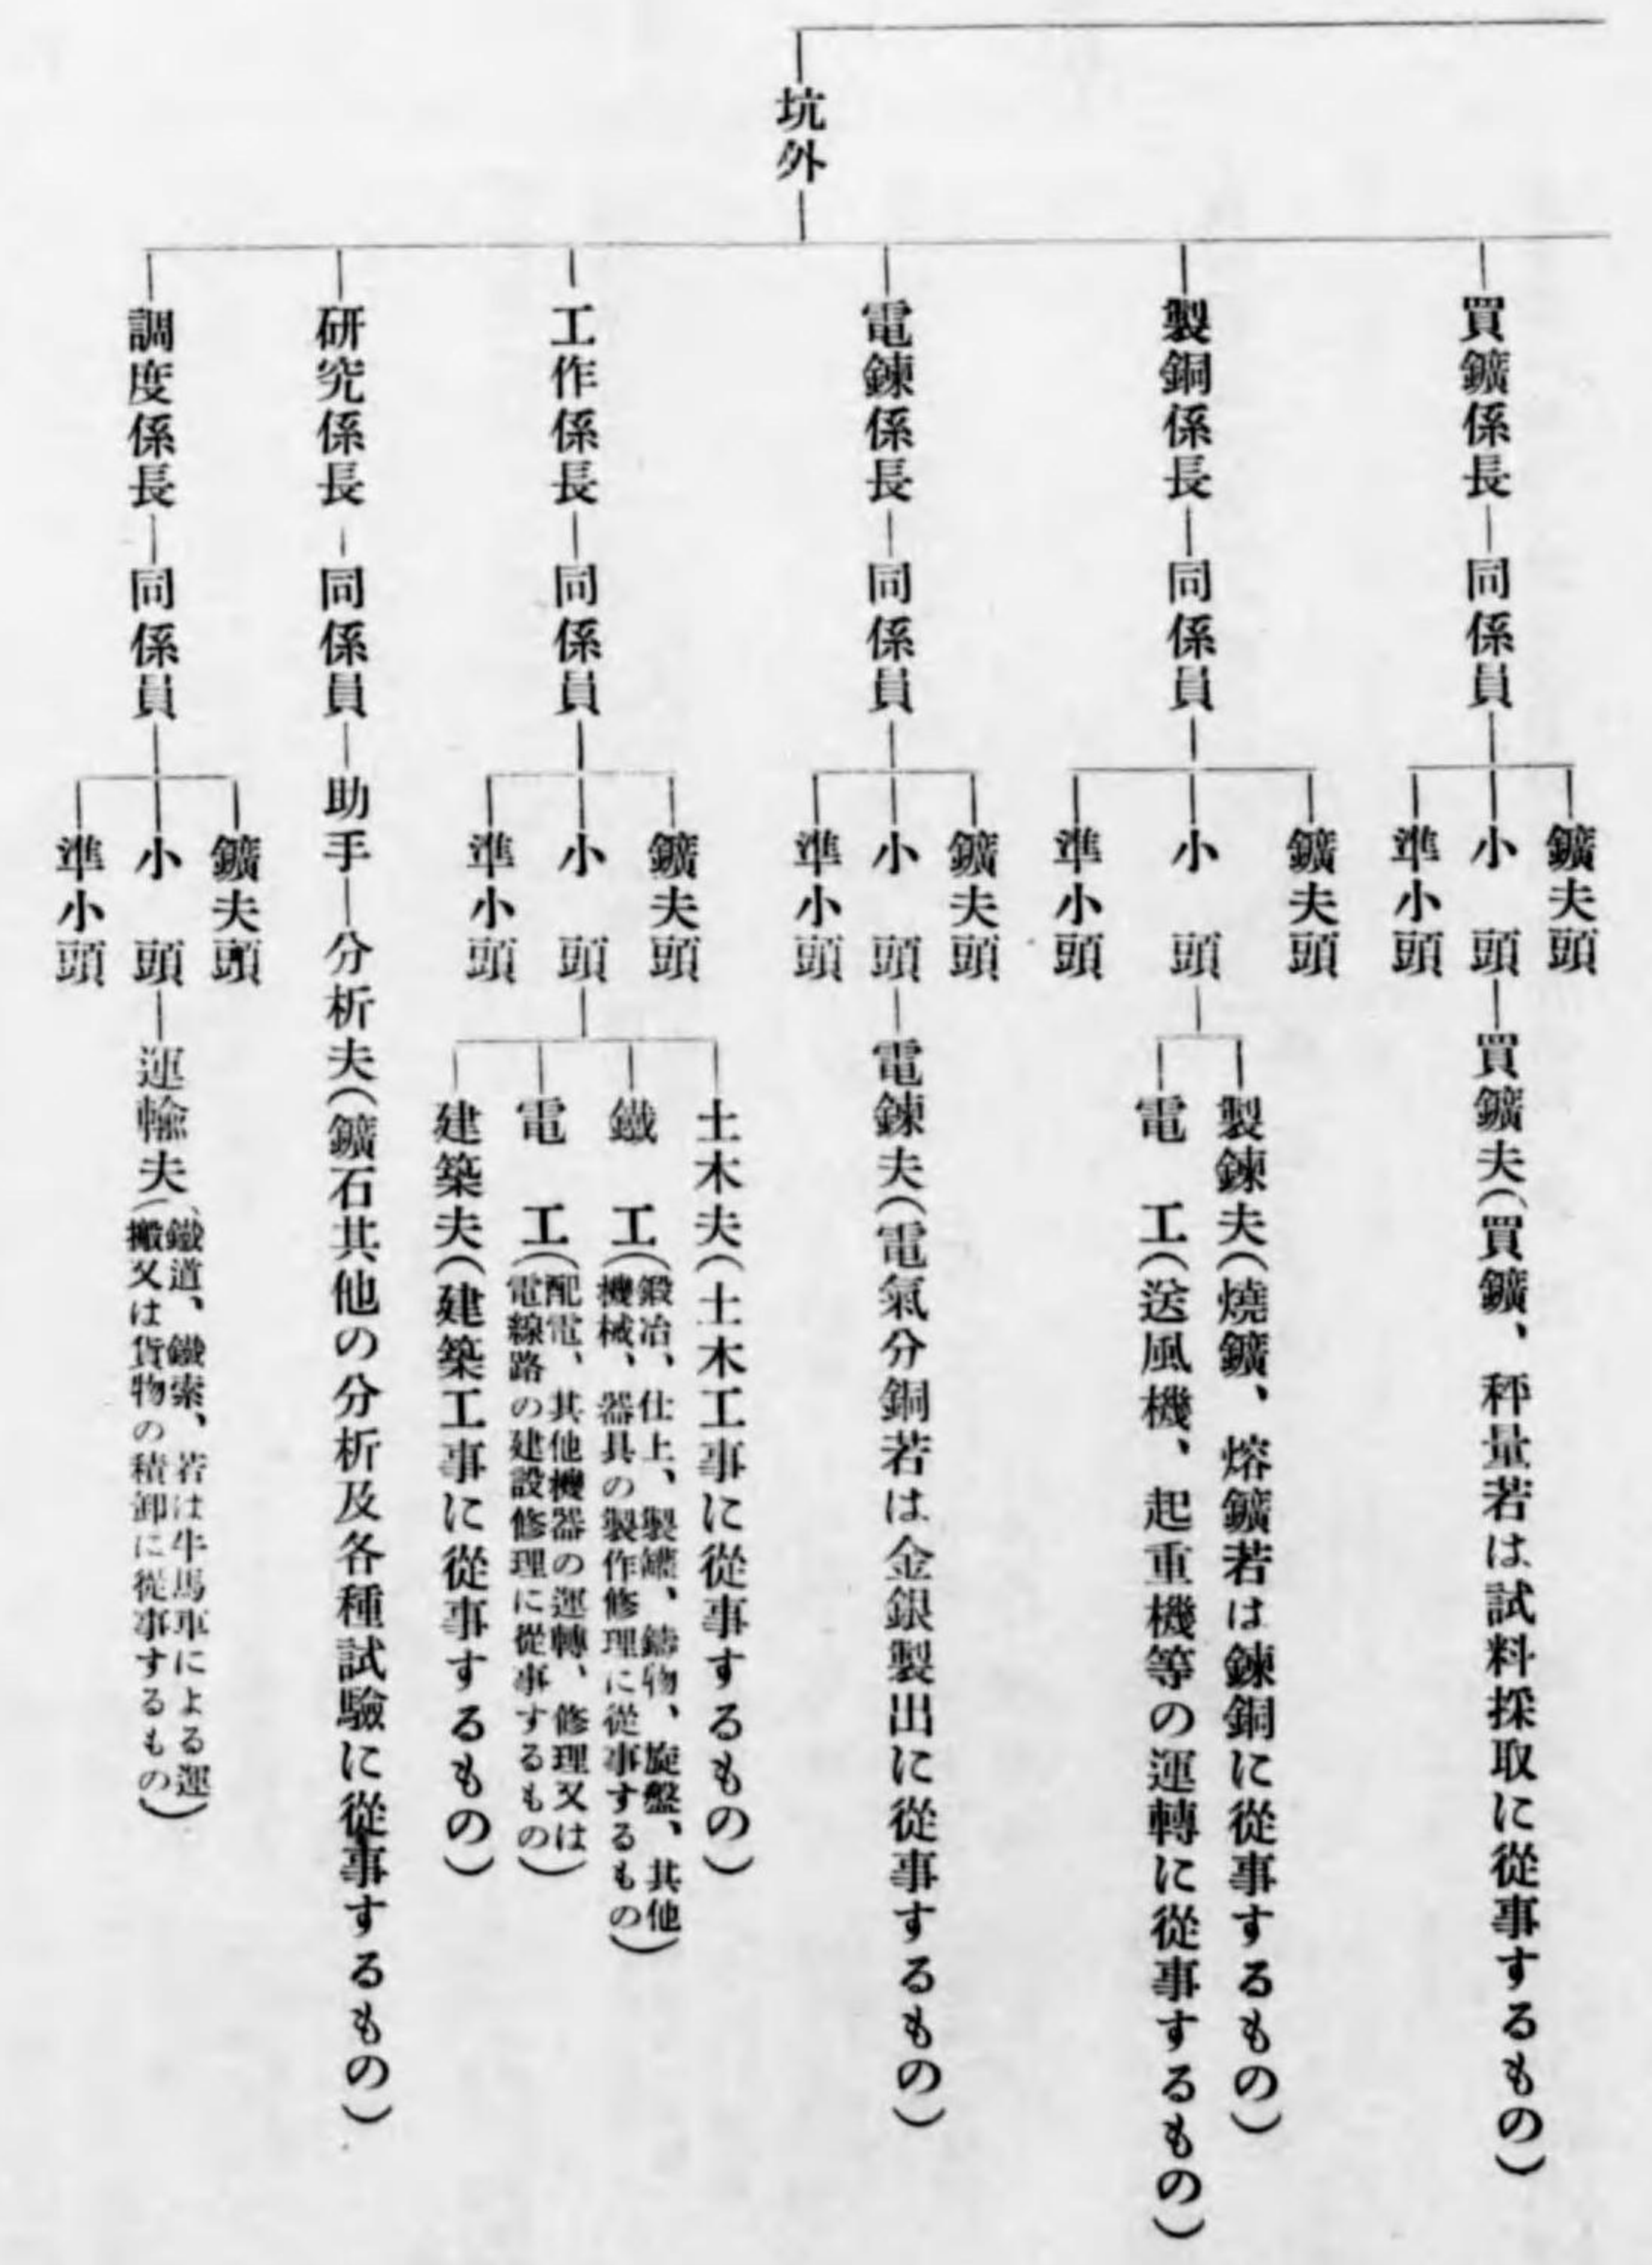 坑外
買鑛係長
同係員
鑛夫頭
小頭
準小頭
買鑛夫(買鑛、秤量若は試料採取に從事するもの)
製銅係長
同係員
鑛夫頭
小頭
準小頭
製鍊夫(燒鑛、熔鑛若は鍊銅に從事するもの)
電工(送風機、起重機等の運轉に從事するもの)
電鍊係長
同係員
鑛夫頭
小頭
準小頭
電鍊夫(電氣分銅若は金銀製出に從事するもの)
工作係長
同係員
鑛夫頭
小頭
準小頭
土木夫(土木工事に從事するもの)
鐵工(鍛冶、仕上、製罐、鑄物、旋盤、其他
機械、器具の製作修理に從事するもの)
電工(配電、其他機器の運轉、修理又は
電線路の建設修理に從事するもの)
建築夫(建築工事に從事するもの)
研究係長
同係員
助手
分析夫(鑛石其他の分析及各種試驗に從事するもの)
調度係長
同係員
鑛夫頭
小頭
準小頭
運輸夫(鐵道、鐵索、若は牛馬車による運
搬又は貨物の積卸に從事するもの)